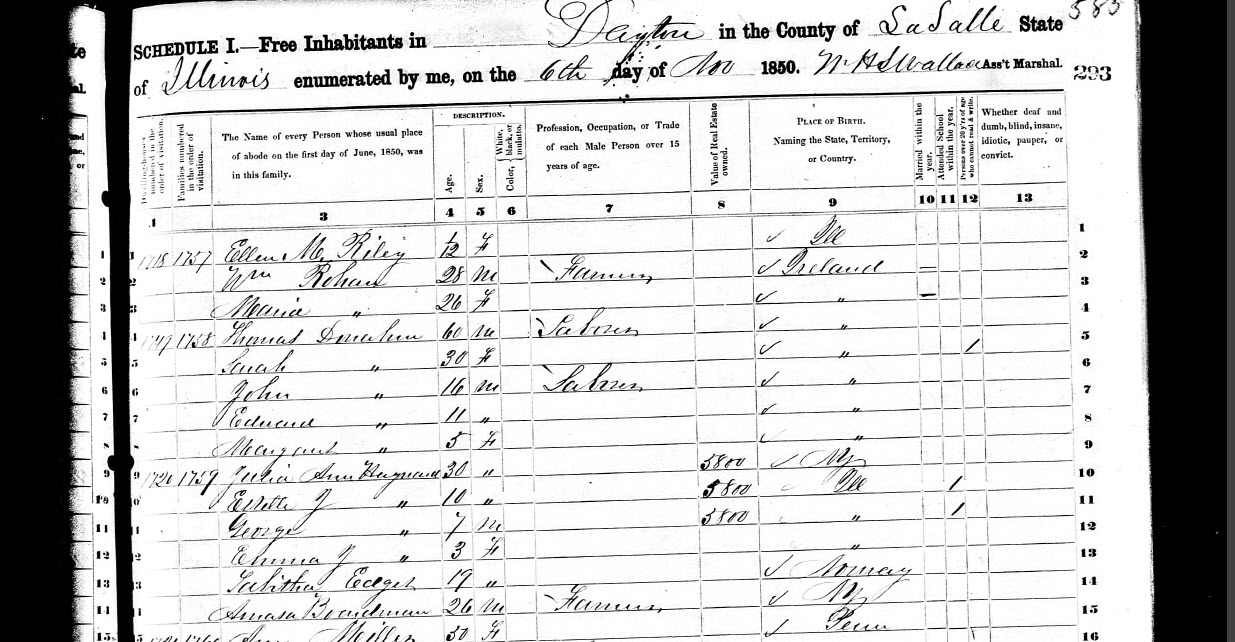 585
SCHEDULE I.—Free Inhabitants in Dayton in the County of LaSalle State
of Illinois enumerated by me, on the 6th day of Nov 1850. W H L Wallace Ass't Marshal.
293
Dwelling-houses numbered in the order of visitation.
Families numbered in the order of visitation.
The Name of every Person whose usual place of abode on the first day of June, 1850, was in this family.
DESCRIPTION.
Age.
Sex.
Color, { White, black, or mulatto.
Profession, Occupation, or Trade of each Male Person over 15 years of age.
Value of Real Estate owned.
PLACE OF BIRTH.
Naming the State, Territory, or Country.
Married within the year.
Attended School within the year.
Persons over 20 y'rs of age who cannot read & write.
Whether deaf and dumb, blind, insane, idiotic, pauper, or convict.
1 3 4 5 6 7 8 9 10 11 12 13
1 Ellen M. Riley 1/12 F Ill 1
2 1718 1757 Wm Rohan 28 M Farmer Ireland – 2
3 Maria " 26 F " – 3
4 1719 1758 Thomas Donahue 60 M Laborer " 4
5 Sarah " 30 F " 1 5
6 John " 16 M Laborer " 6
7 Edward " 11 " " 7
8 Margaret " 5 F " 8
9 1720 1759 Julia Ann Haynard 30 " 5800 NY 9
10 Estelle J " 10 " 5800 Ill 1 10
11 George " 7 M 5800 " 1 11
12 Emma J " 3 F " 12
13 Tabitha Edget 19 " Norway 13
14 Amasa Boardman 26 M Farmer NY 14
15 Miller 30 F Penn 15
16